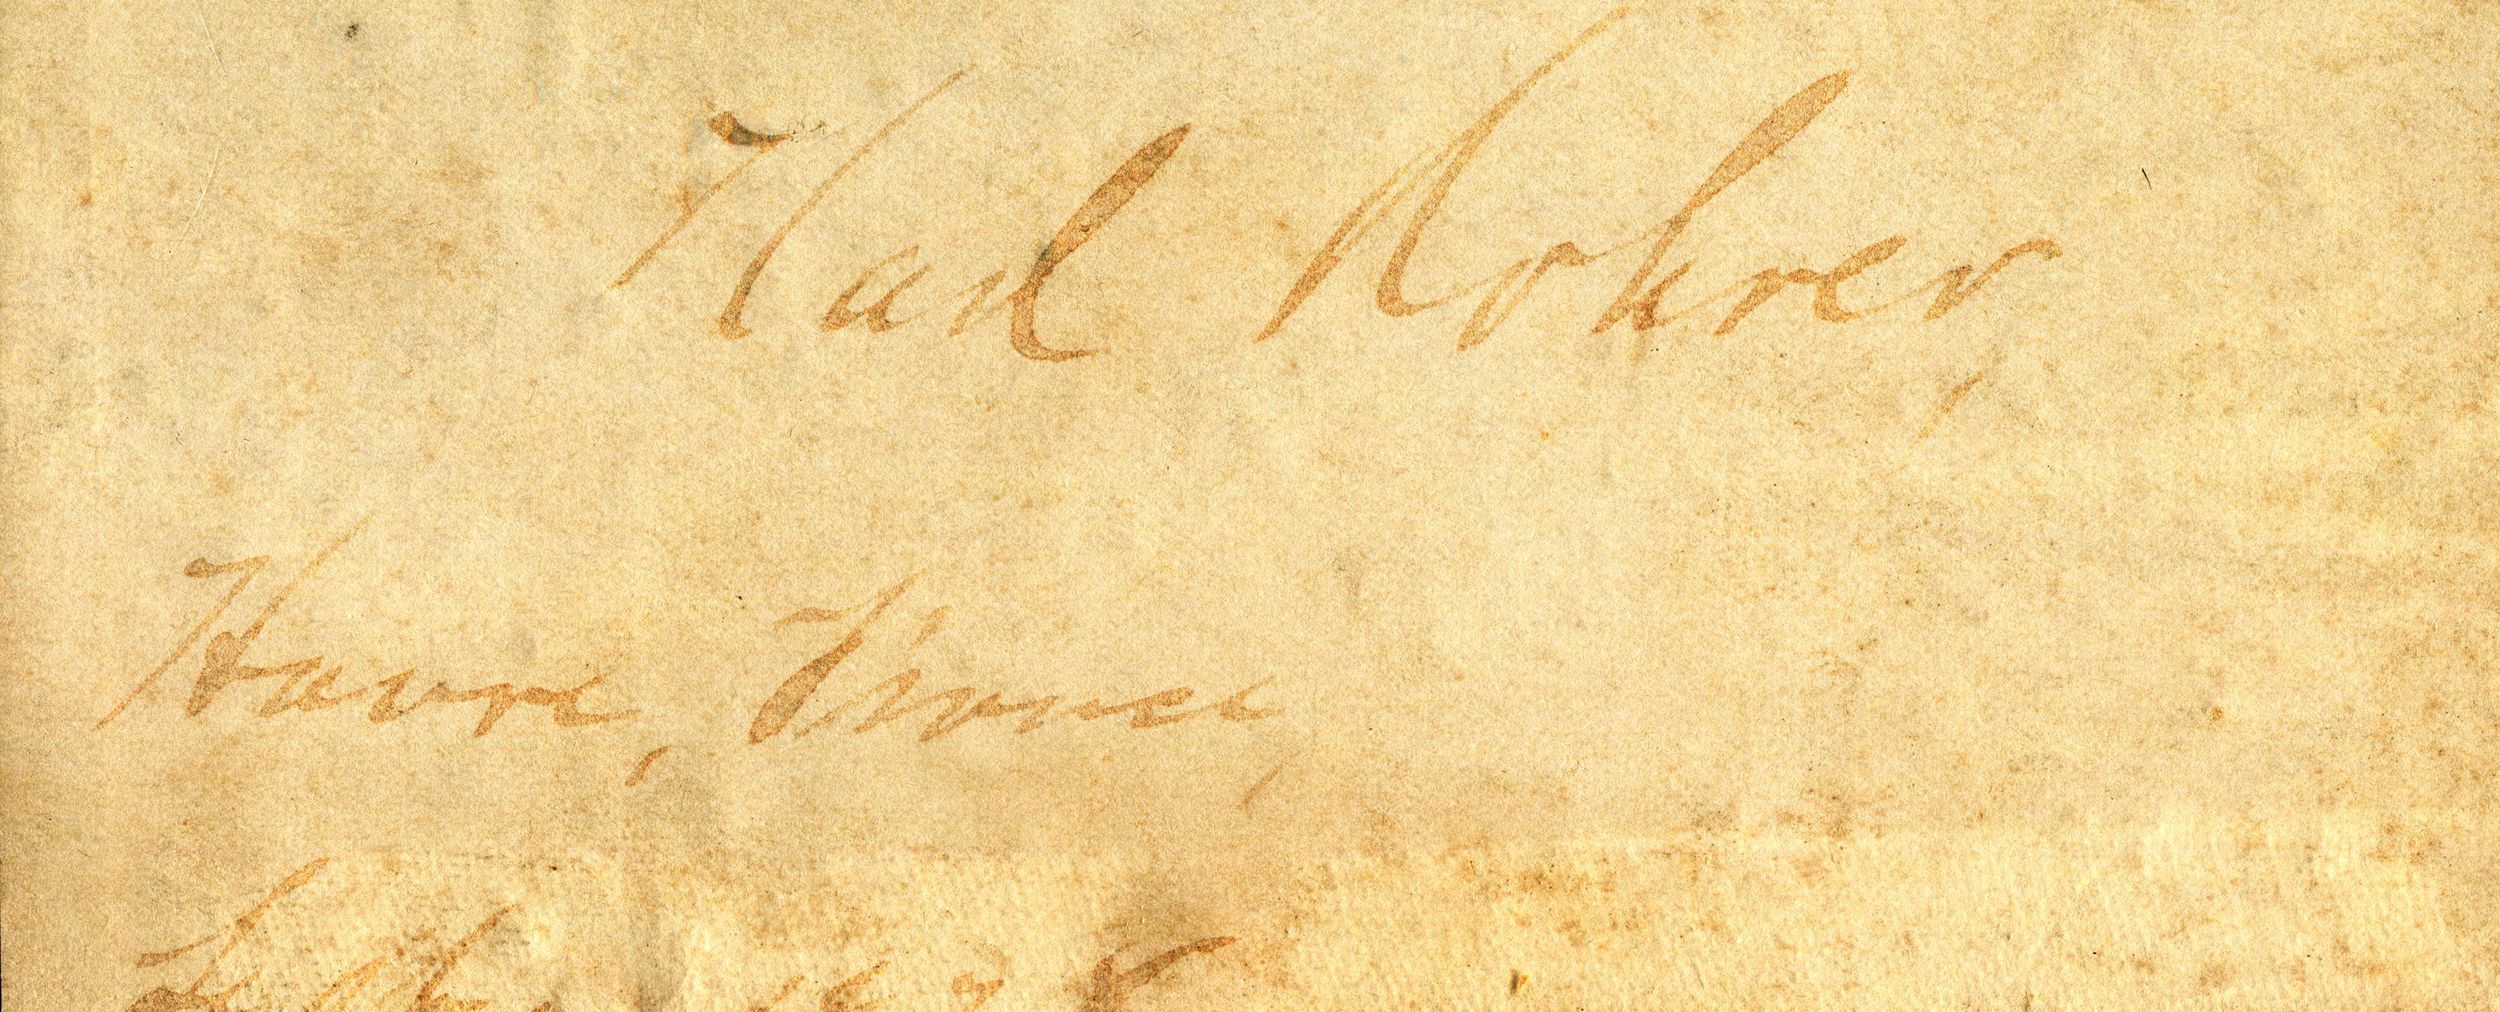 Karl Rohrer,
Havre, France,